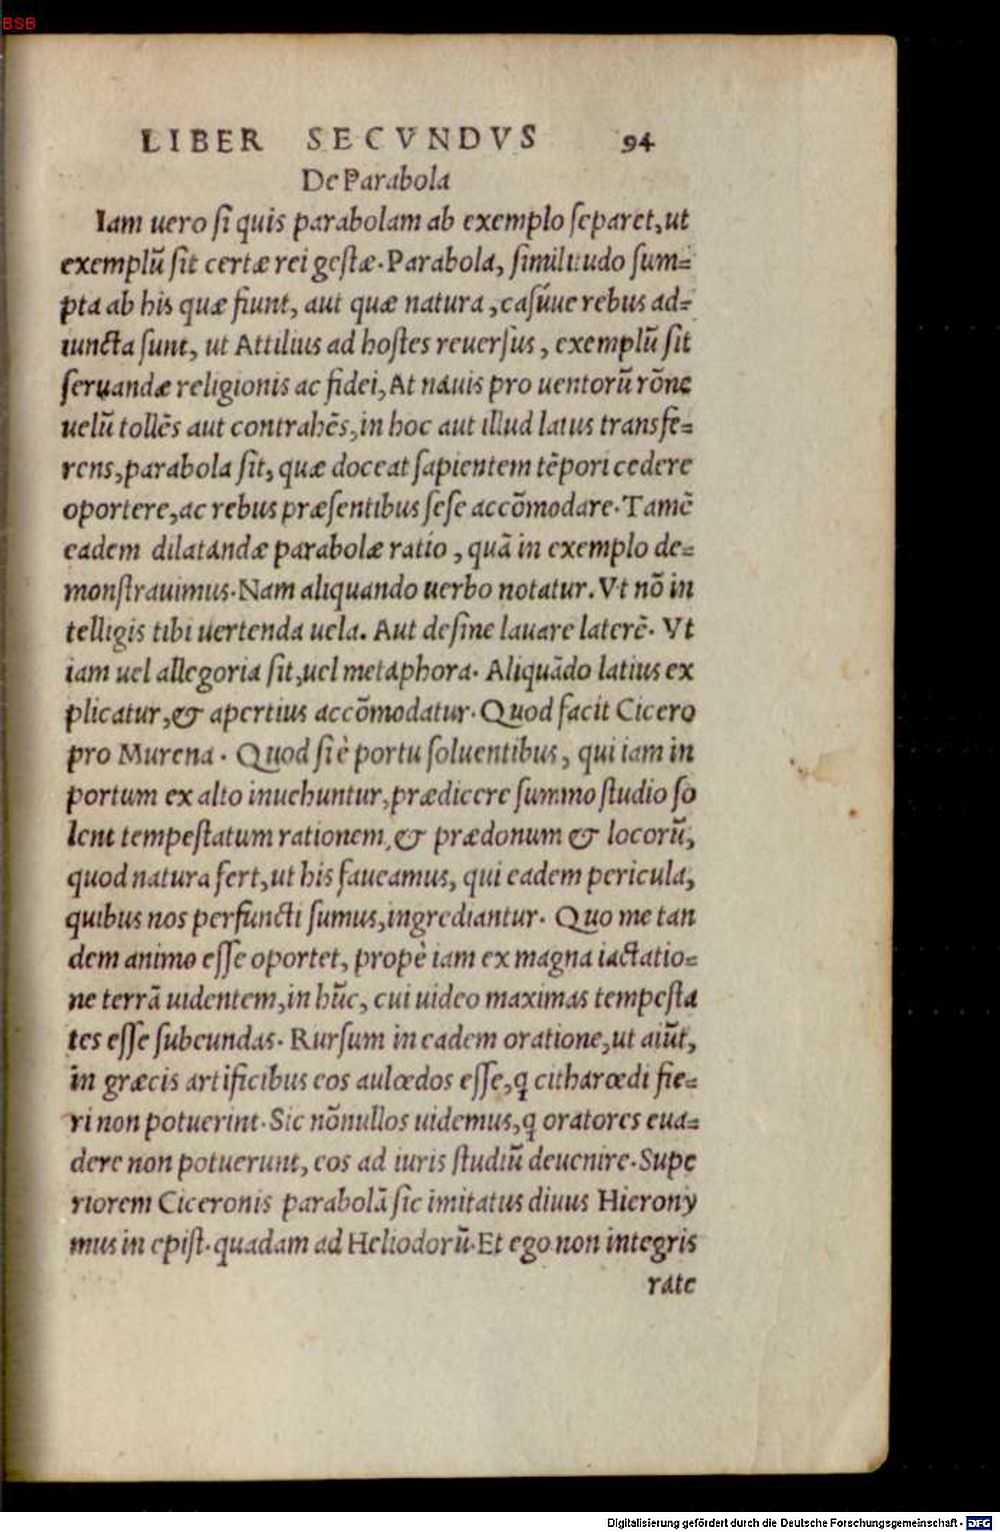 BSB
LIBER SECVNDVS 94
De Parabola
Iam uero ſi quis parabolam ab exemplo ſeparet, ut
exemplũ ſit certæ rei geſtæ. Parabola, ſimilitudo ſum=
pta ab his quæ fiunt, aut quæ natura, caſúue rebus ad=
iuncta ſunt, ut Attilius ad hoſtes reuerſus, exemplũ ſit
ſeruandæ religionis ac fidei, At nauis pro uentorũ rõne
uelũ tollẽs aut contrahẽs, in hoc aut illud latus transfe=
rens, parabola ſit, quæ doceat ſapientem tẽpori cedere
oportere, ac rebus præſentibus ſeſe accõmodare. Tamẽ
eadem dilatandæ parabolæ ratio, quã in exemplo de=
monſtrauimus. Nam aliquando uerbo notatur. Vt nõ in
telligis tibi uertenda uela. Aut deſine lauare laterẽ. Vt
iam uel allegoria ſit, uel metaphora. Aliquãdo latius ex
plicatur, & apertius accõmodatur. Quod facit Cicero
pro Murena. Quod ſi è portu ſoluentibus, qui iam in
portum ex alto inuehuntur, prædicere ſummo ſtudio ſo
lent tempeſtatum rationem, & prædonum & locorũ,
quod natura fert, ut his faueamus, qui eadem pericula,
quibus nos perfuncti ſumus, ingrediantur. Quo me tan
dem animo eſſe oportet, propè iam ex magna iactatio=
ne terrã uidentem, in hũc, cui uideo maximas tempeſta
tes eſſe ſubeundas. Rurſum in eadem oratione, ut aiũt,
in græcis artificibus eos aulœdos eſſe, q̃ citharœdi fie=
ri non potuerint. Sic nõnullos uidemus, q̃ oratores eua=
dere non potuerunt, eos ad iuris ſtudiũ deuenire. Supe
riorem Ciceronis parabolã ſic imitatus diuus Hierony
mus in epiſt. quadam ad Heliodorũ. Et ego non integris
rate
Digitalisierung gefördert durch die Deutsche Forschungsgemeinschaft - DFG